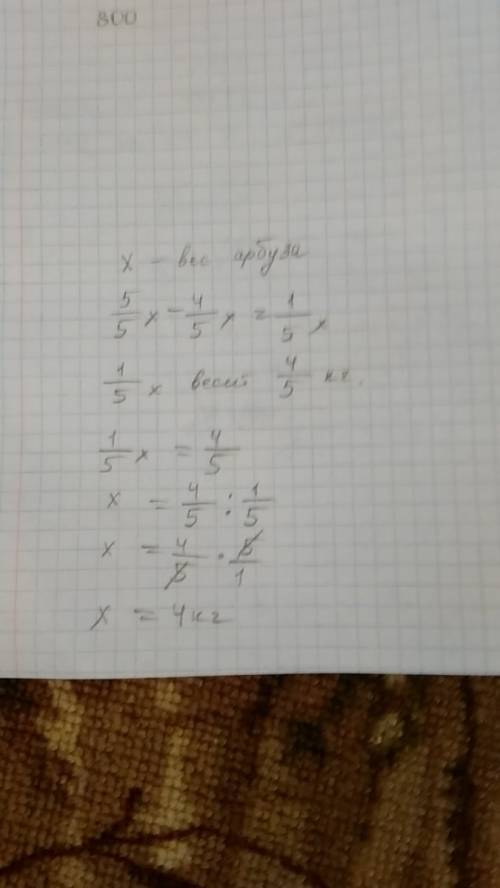 800
x - вес арбуза
5/5 x - 4/5 x = 1/5 x
1/5 x весит 4/5 кг.
1/5 x = 4/5
x = 4/5 : 1/5
x = 4/5 · 5/1
x = 4кг